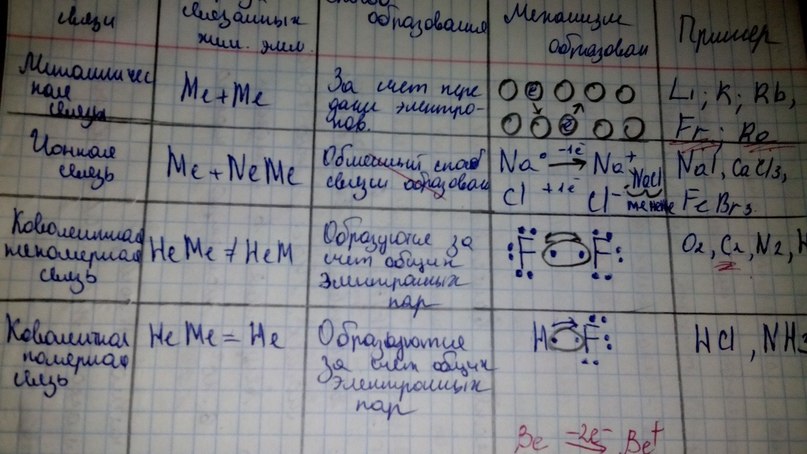 связи
связанных
хим. элем.
способ
образования
Механизм
образован
Пример
Металличес
кая
связь
Me + Me
За счет пере
дачи электро-
нов.
Li; K; Rb,
Fr; Ra
Ионная
связь
Me + NeMe
Обменный способ
связи образован
Na° -1e Na+
Cl +1e Cl-
NaCl
NaI, CaCl3,
FeBr3.
Ковалентная
неполярная
связь
НеМе ≠ НеМ
Образуются за
счет общих
электронных
пар
F F
O2, Cl, N2, H
Ковалентная
полярная
связь
НеМе = Не
Образуются
за счет общих
электронных
пар
H F
HCl, NH3
Be -2e- Be+